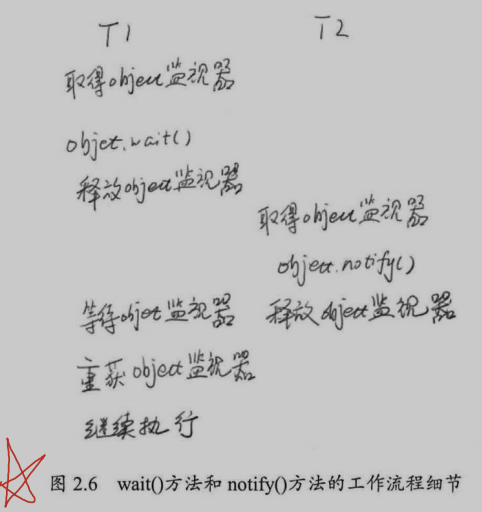 T1 T2
取得object监视器
objet.wait()
释放object监视器
取得object监视器
object.notify()
等待objet监视器 释放object监视器
重获object监视器
继续执行
图 2.6 wait()方法和 notify()方法的工作流程细节